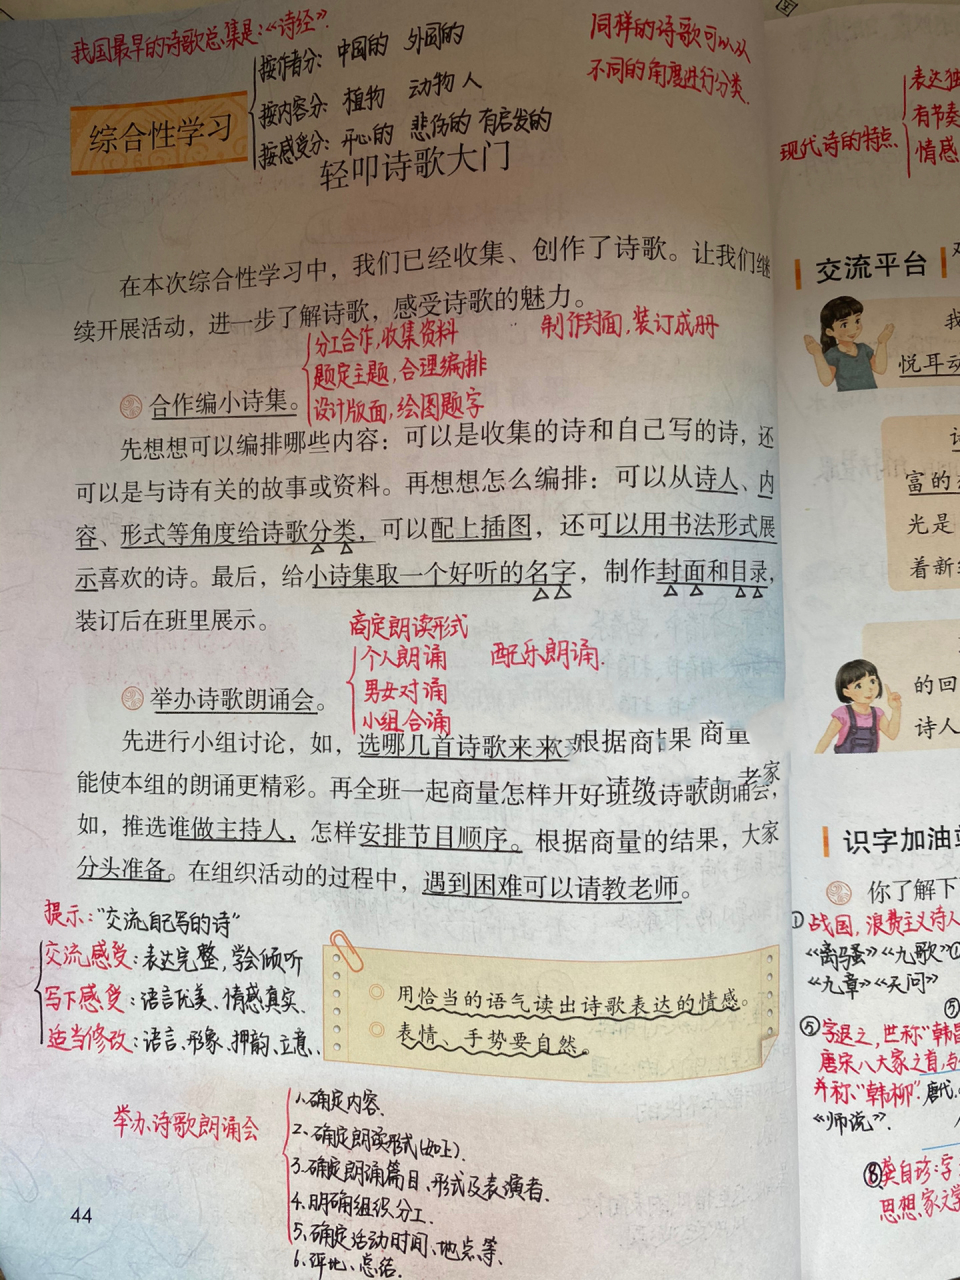 我国最早的诗歌总集是:《诗经》.
按作者分: 中国的 外国的
按内容分: 植物 动物 人
按感受分: 开心的 悲伤的 有启发的
同样的诗歌可以从
不同的角度进行分类.
综合性学习
轻叩诗歌大门
在本次综合性学习中，我们已经收集、创作了诗歌。让我们继
续开展活动，进一步了解诗歌，感受诗歌的魅力。
分工合作,收集资料
题定主题,合理编排
设计版面,绘图题字
制作封面,装订成册
合作编小诗集。
先想想可以编排哪些内容：可以是收集的诗和自己写的诗，还
可以是与诗有关的故事或资料。再想想怎么编排：可以从诗人、内
容、形式等角度给诗歌分类，可以配上插图，还可以用书法形式展
示喜欢的诗。最后，给小诗集取一个好听的名字，制作封面和目录，
装订后在班里展示。
商定朗读形式
个人朗诵
男女对诵
小组合诵
配乐朗诵.
举办诗歌朗诵会。
先进行小组讨论，如，选哪几首诗歌来 根据商 果 商量
能使本组的朗诵更精彩。再全班一起商量怎样开好班级诗歌朗诵会，
如，推选谁做主持人，怎样安排节目顺序。根据商量的结果，大家
分头准备。在组织活动的过程中，遇到困难可以请教老师。
提示:"交流自己写的诗"
交流感受:表达完整,学会倾听
写下感受:语言优美、情感真实.
适当修改:语言、形象、押韵、立意、
用恰当的语气读出诗歌表达的情感。
表情、手势要自然。
举办诗歌朗诵会
1.确定内容.
2.确定朗读形式(如上).
3.确定朗诵篇目、形式及表演者.
4.明确组织分工.
5.确定活动时间、地点等.
6.评比、总结.
44
现代诗的特点
表达独
有节奏
情感
交流平台
我
悦耳动
富的
光是
着新
的回
诗人
识字加油站
你了解下
①战国,浪费主义诗人
《离骚》《九歌》①
《九章》《天问》
⑤
⑤字退之,世称"韩昌
唐宋八大家之首,与
并称"韩柳".唐代.
《师说》.
⑧龚自珍:字
思想家文学